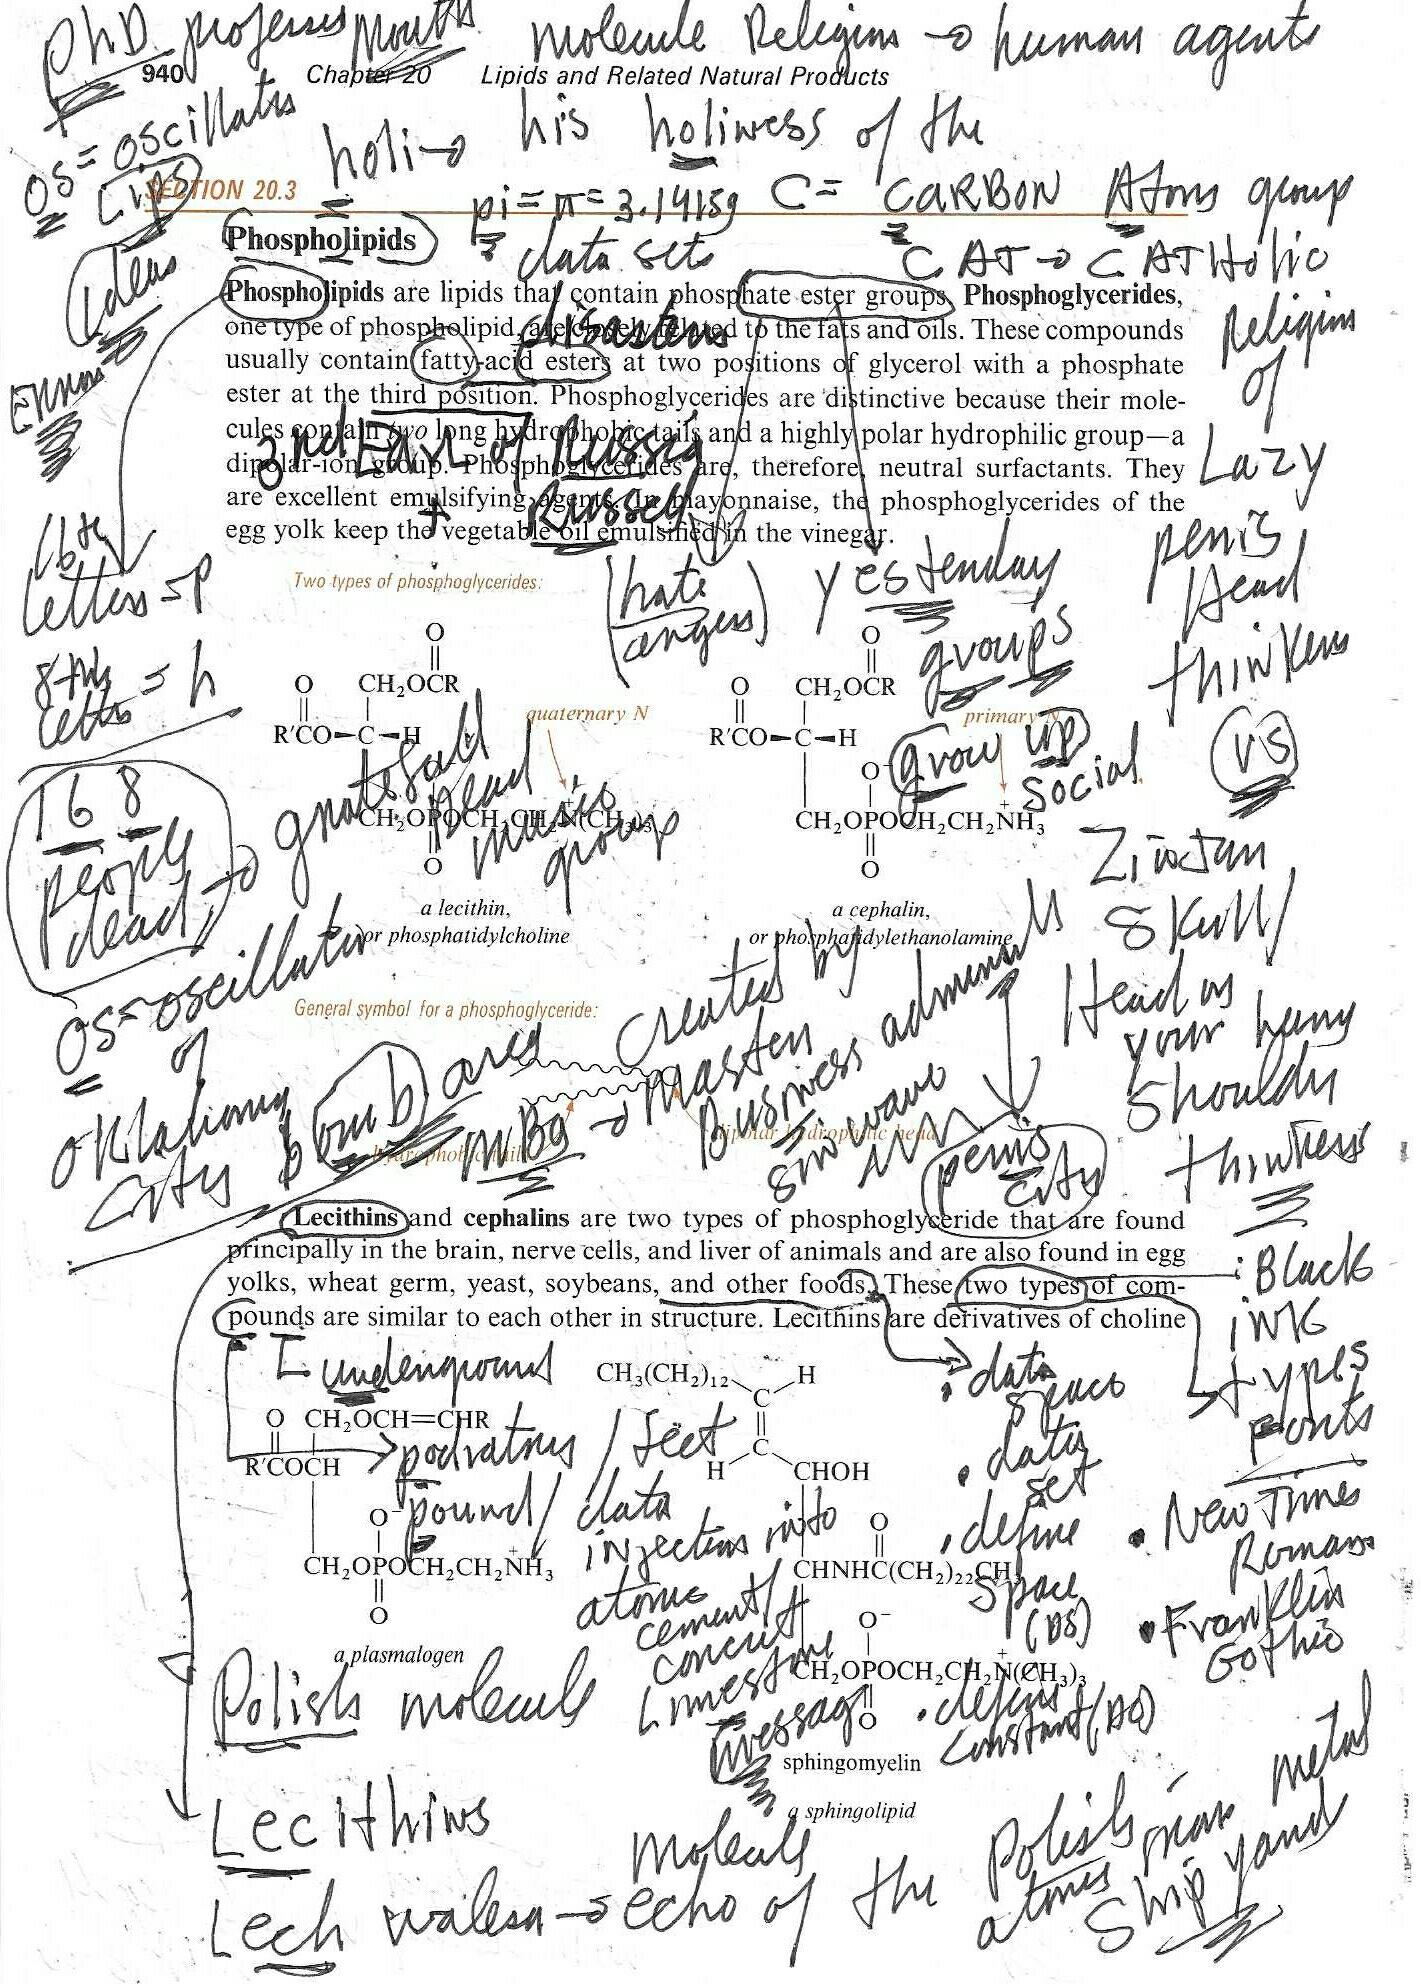 PhD professes Mouth molecule Religion → human agents
940 Chapter 20 Lipids and Related Natural Products
OS = oscillates
holi → his holiness of the
Lips
SECTION 20.3
pi = π = 3.14159 C = CARBON Atoms group
Phospholipids
data sets C AT → C ATHolic
ideas
Phospholipids are lipids that contain phosphate ester groups. Phosphoglycerides,
one type of phospholipid, are closely related to the fats and oils. These compounds
disasters
Religion
of
usually contain fatty-acid esters at two positions of glycerol with a phosphate
Errors
ester at the third position. Phosphoglycerides are distinctive because their mole-
cules contain two long hydrophobic tails and a highly polar hydrophilic group—a
3rd Earl of Russia
Lazy
dipolar-ion group. Phosphoglycerides are, therefore, neutral surfactants. They
are excellent emulsifying agents. In mayonnaise, the phosphoglycerides of the
+ Russell
egg yolk keep the vegetable oil emulsified in the vinegar.
16th
letters = P
penis
Head
thinkers
Two types of phosphoglycerides:
(hate
angers)
yesterday
groups
8th
letters = h
O O
CH₂OCR CH₂OCR
O O
quaternary N primary N
R′CO—C—H R′CO—C—H
grow up
social
vs
168
people
dead →
grateful
Dead
music
group
O⁻
CH₂OPOCH₂CH₂N⁺(CH₃)₃ CH₂OPOCH₂CH₂N⁺H₃
O O
Zinjan
Skull/
Head on
your hung
Shouldy
thinkers
a lecithin, a cephalin,
or phosphatidylcholine or phosphatidylethanolamine
OS = oscillator
of
Oklahoma
City bomb area
General symbol for a phosphoglyceride:
created by
MBA → Master
Business
sin wave
hydrophobic tails
dipolar hydrophilic head
penis
city
Lecithins and cephalins are two types of phosphoglyceride that are found
principally in the brain, nerve cells, and liver of animals and are also found in egg
yolks, wheat germ, yeast, soybeans, and other foods. These two types of com-
pounds are similar to each other in structure. Lecithins are derivatives of choline
Black
ink
types
Fonts
• New Times
Romans
• Franklin
Gothic
underground
CH₃(CH₂)₁₂ H
C
C
H CHOH
• data
space
• data
set
• define
space
(DS)
• define
constant (DC)
O CH₂OCH=CHR
R′COCH
/ feet
pound/ data
injection into
atomic
cement/
concret
Limestone
message
O⁻ O
CH₂OPOCH₂CH₂N⁺H₃ CHNHC(CH₂)₂₂CH₃
O
O⁻
a plasmalogen
CH₂OPOCH₂CH₂N⁺(CH₃)₃
O
Polish molecule
sphingomyelin
a sphingolipid
Lecithins
molecule
Lech walesa → echo of the Polish
atoms
metal
Ship yard